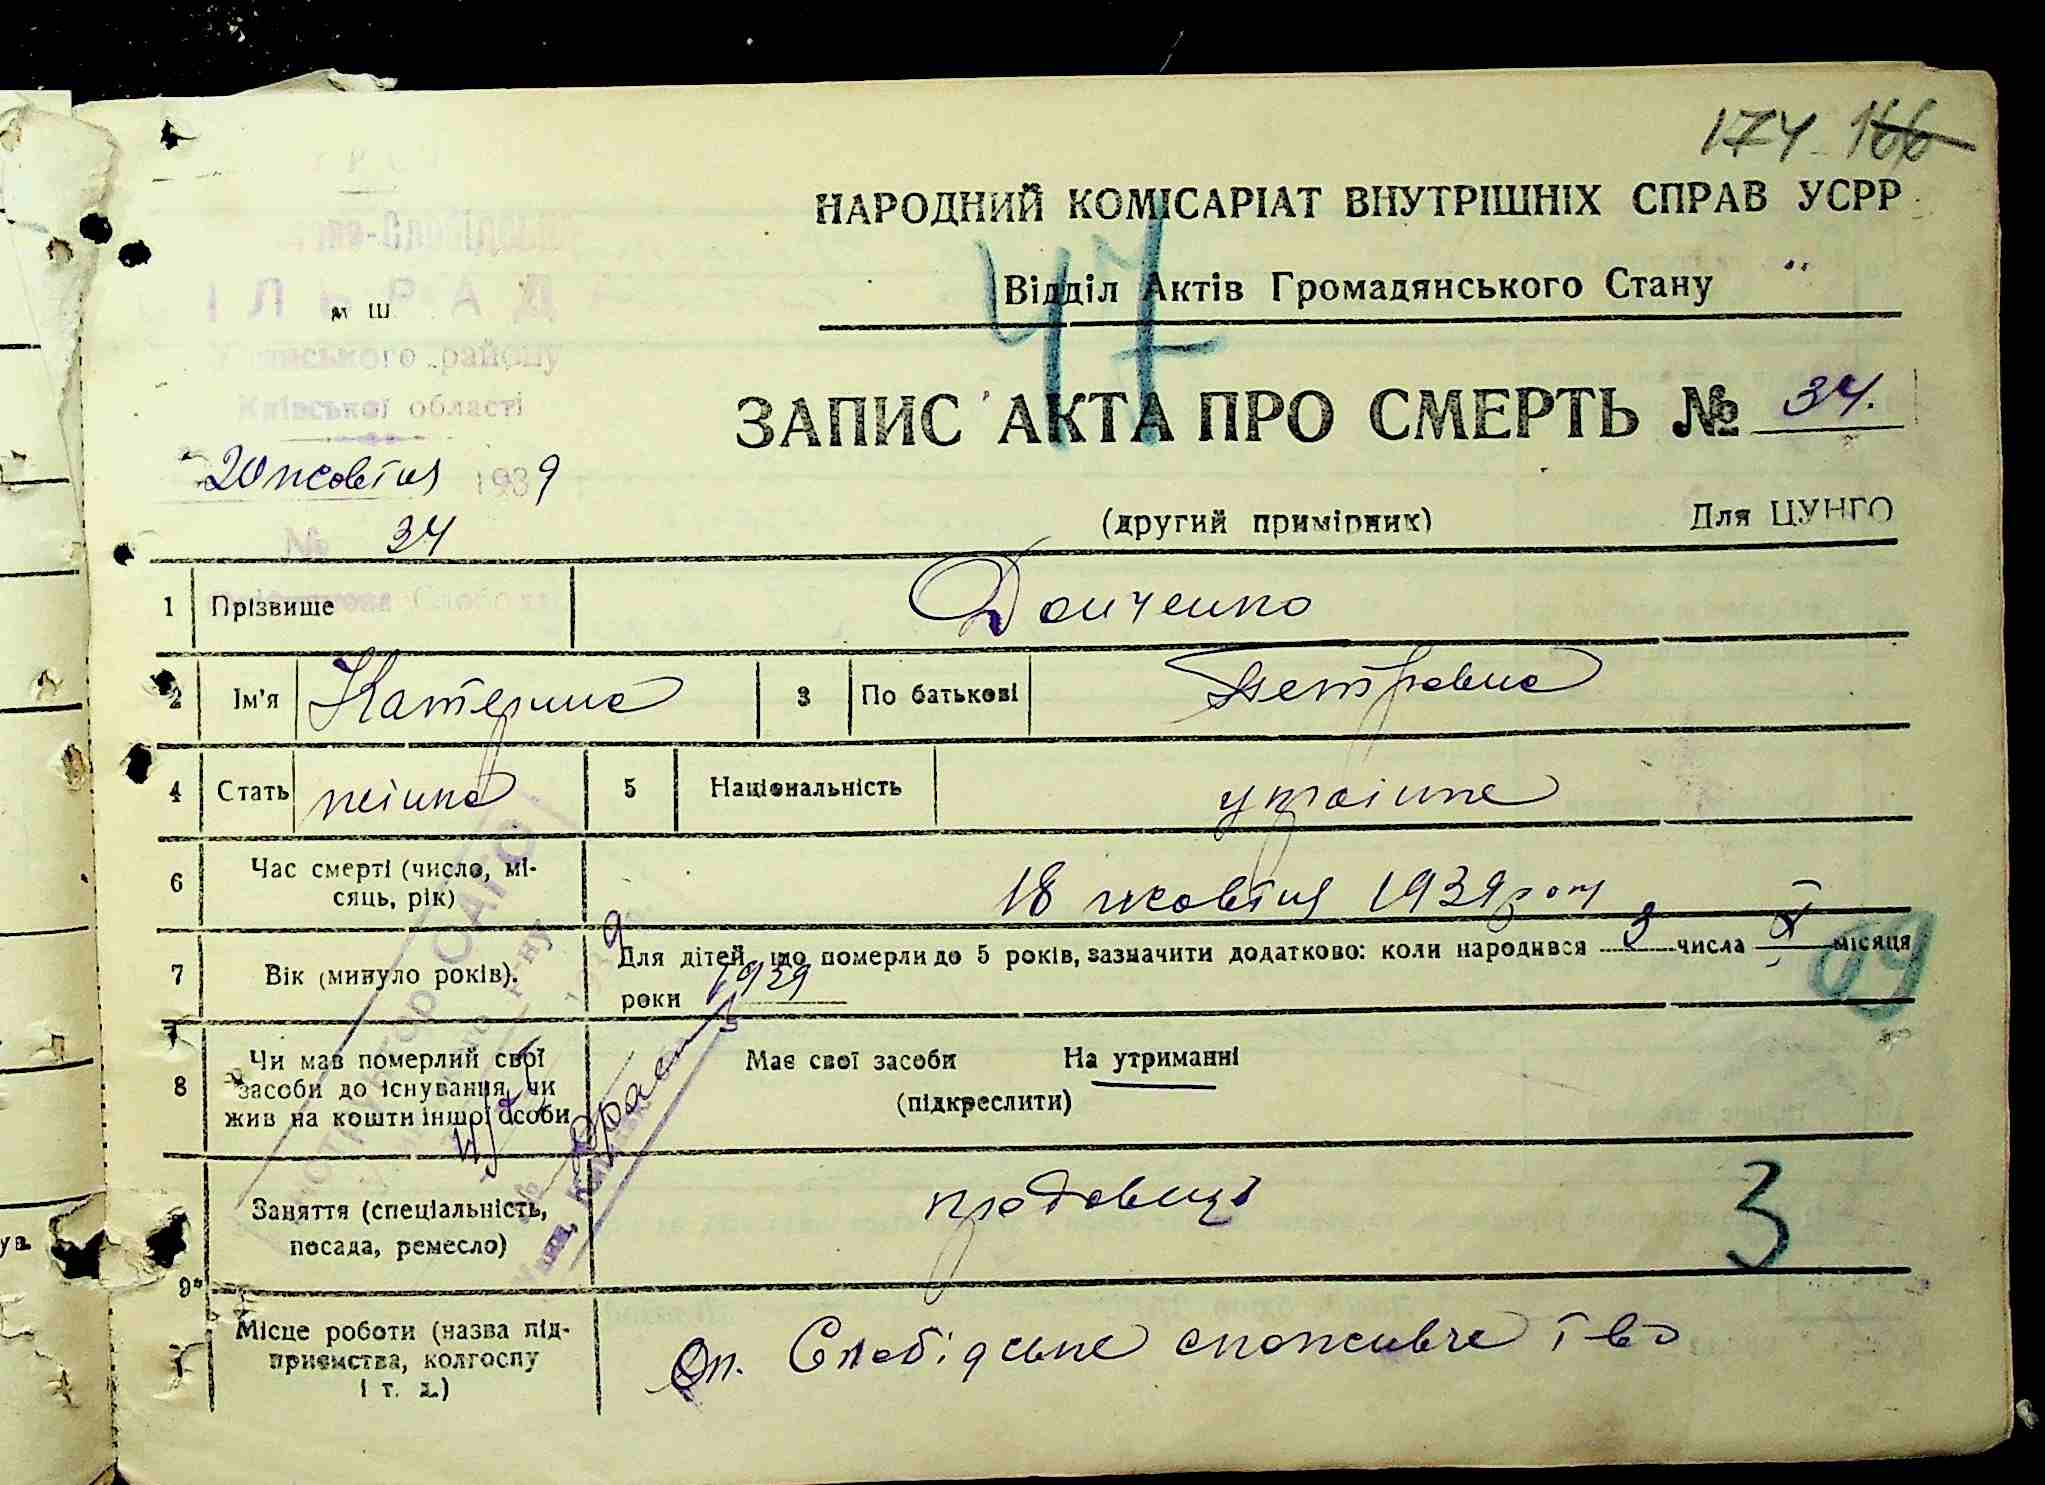 174 166
НАРОДНИЙ КОМІСАРІАТ ВНУТРІШНІХ СПРАВ УСРР
47
Відділ Актів Громадянського Стану
ІЛЬРАДА
району
Київської області
ЗАПИС АКТА ПРО СМЕРТЬ № 34.
20 жовтня 1939
(другий примірник) Для ЦУНГО
№ 34
1 Прізвище Донченко
2 Ім'я Катерина 3 По батькові Петровна
4 Стать жінка 5 Національність українка
6 Час смерті (число, мі-
сяць, рік) 18 жовтня 1939 року
7 Вік (минуло років). 9 Для дітей, що померли до 5 років, зазначити додатково: коли народився 9 числа X місяця
роки 1939
09
8 Чи мав померлий свої
засоби до існування, чи
жив на кошти іншої особи
Має свої засоби На утриманні
(підкреслити)
9 Заняття (спеціальність,
посада, ремесло) продавець
3
Місце роботи (назва під-
приємства, колгоспу
і т. д.) Оп. Слобідське споживче т-во